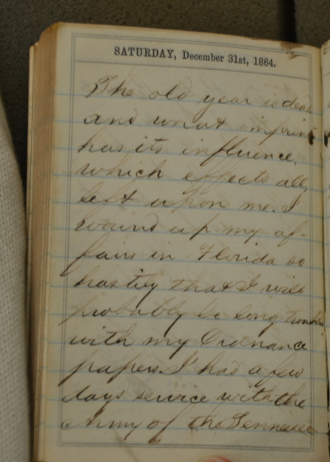 SATURDAY, December 31st, 1864.
The old year is dead
and what imprint
has its influence,
which effects all,
left upon me. I
wound up my af-
fairs in Florida so
hastily that I will
probably be long
with my Ordnance
papers. I had a few
days service with the
Army of the Tennessee